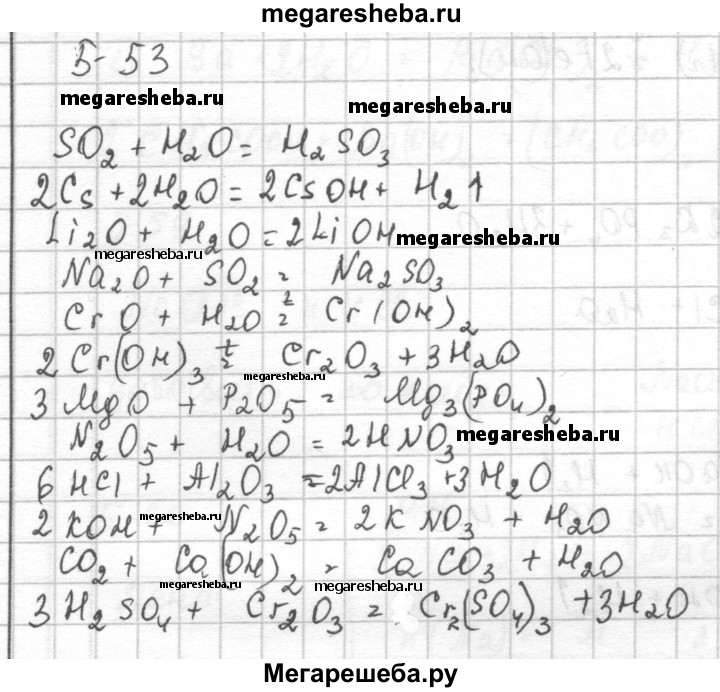 megaresheba.ru
5-53
megaresheba.ru megaresheba.ru
SO₂ + H₂O = H₂SO₃
2Cs + 2H₂O = 2CsOH + H₂↑
Li₂O + H₂O = 2LiOH megaresheba.ru
megaresheba.ru
Na₂O + SO₂ = Na₂SO₃
CrO + H₂O = Cr(OH)₂
2Cr(OH)₃ t= Cr₂O₃ + 3H₂O
megaresheba.ru
3MgO + P₂O₅ = Mg₃(PO₄)₂
N₂O₅ + H₂O = 2HNO₃ megaresheba.ru
6HCl + Al₂O₃ = 2AlCl₃ + 3H₂O
megaresheba.ru
2KOH + N₂O₅ = 2KNO₃ + H₂O
CO₂ + Ca(OH)₂ = CaCO₃ + H₂O
megaresheba.ru megaresheba.ru
3H₂SO₄ + Cr₂O₃ = Cr₂(SO₄)₃ + 3H₂O
Мегарешеба.ру